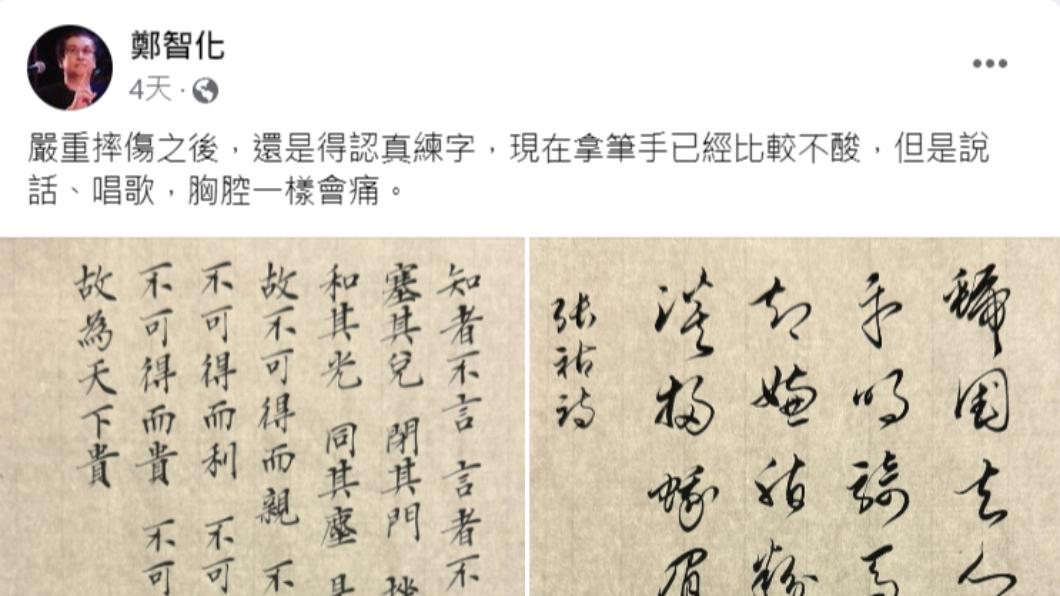 鄭智化
4天
嚴重摔傷之後，還是得認真練字，現在拿筆手已經比較不酸，但是說
話、唱歌，胸腔一樣會痛。
知者不言 言者不
塞其兌 閉其門 挫
和其光 同其塵 是
故不可得而親 不
不可得而利 不可
不可得而貴 不可
故為天下貴
虢國夫人
平明騎馬
却嫌脂粉
淡掃蛾眉
張祜詩